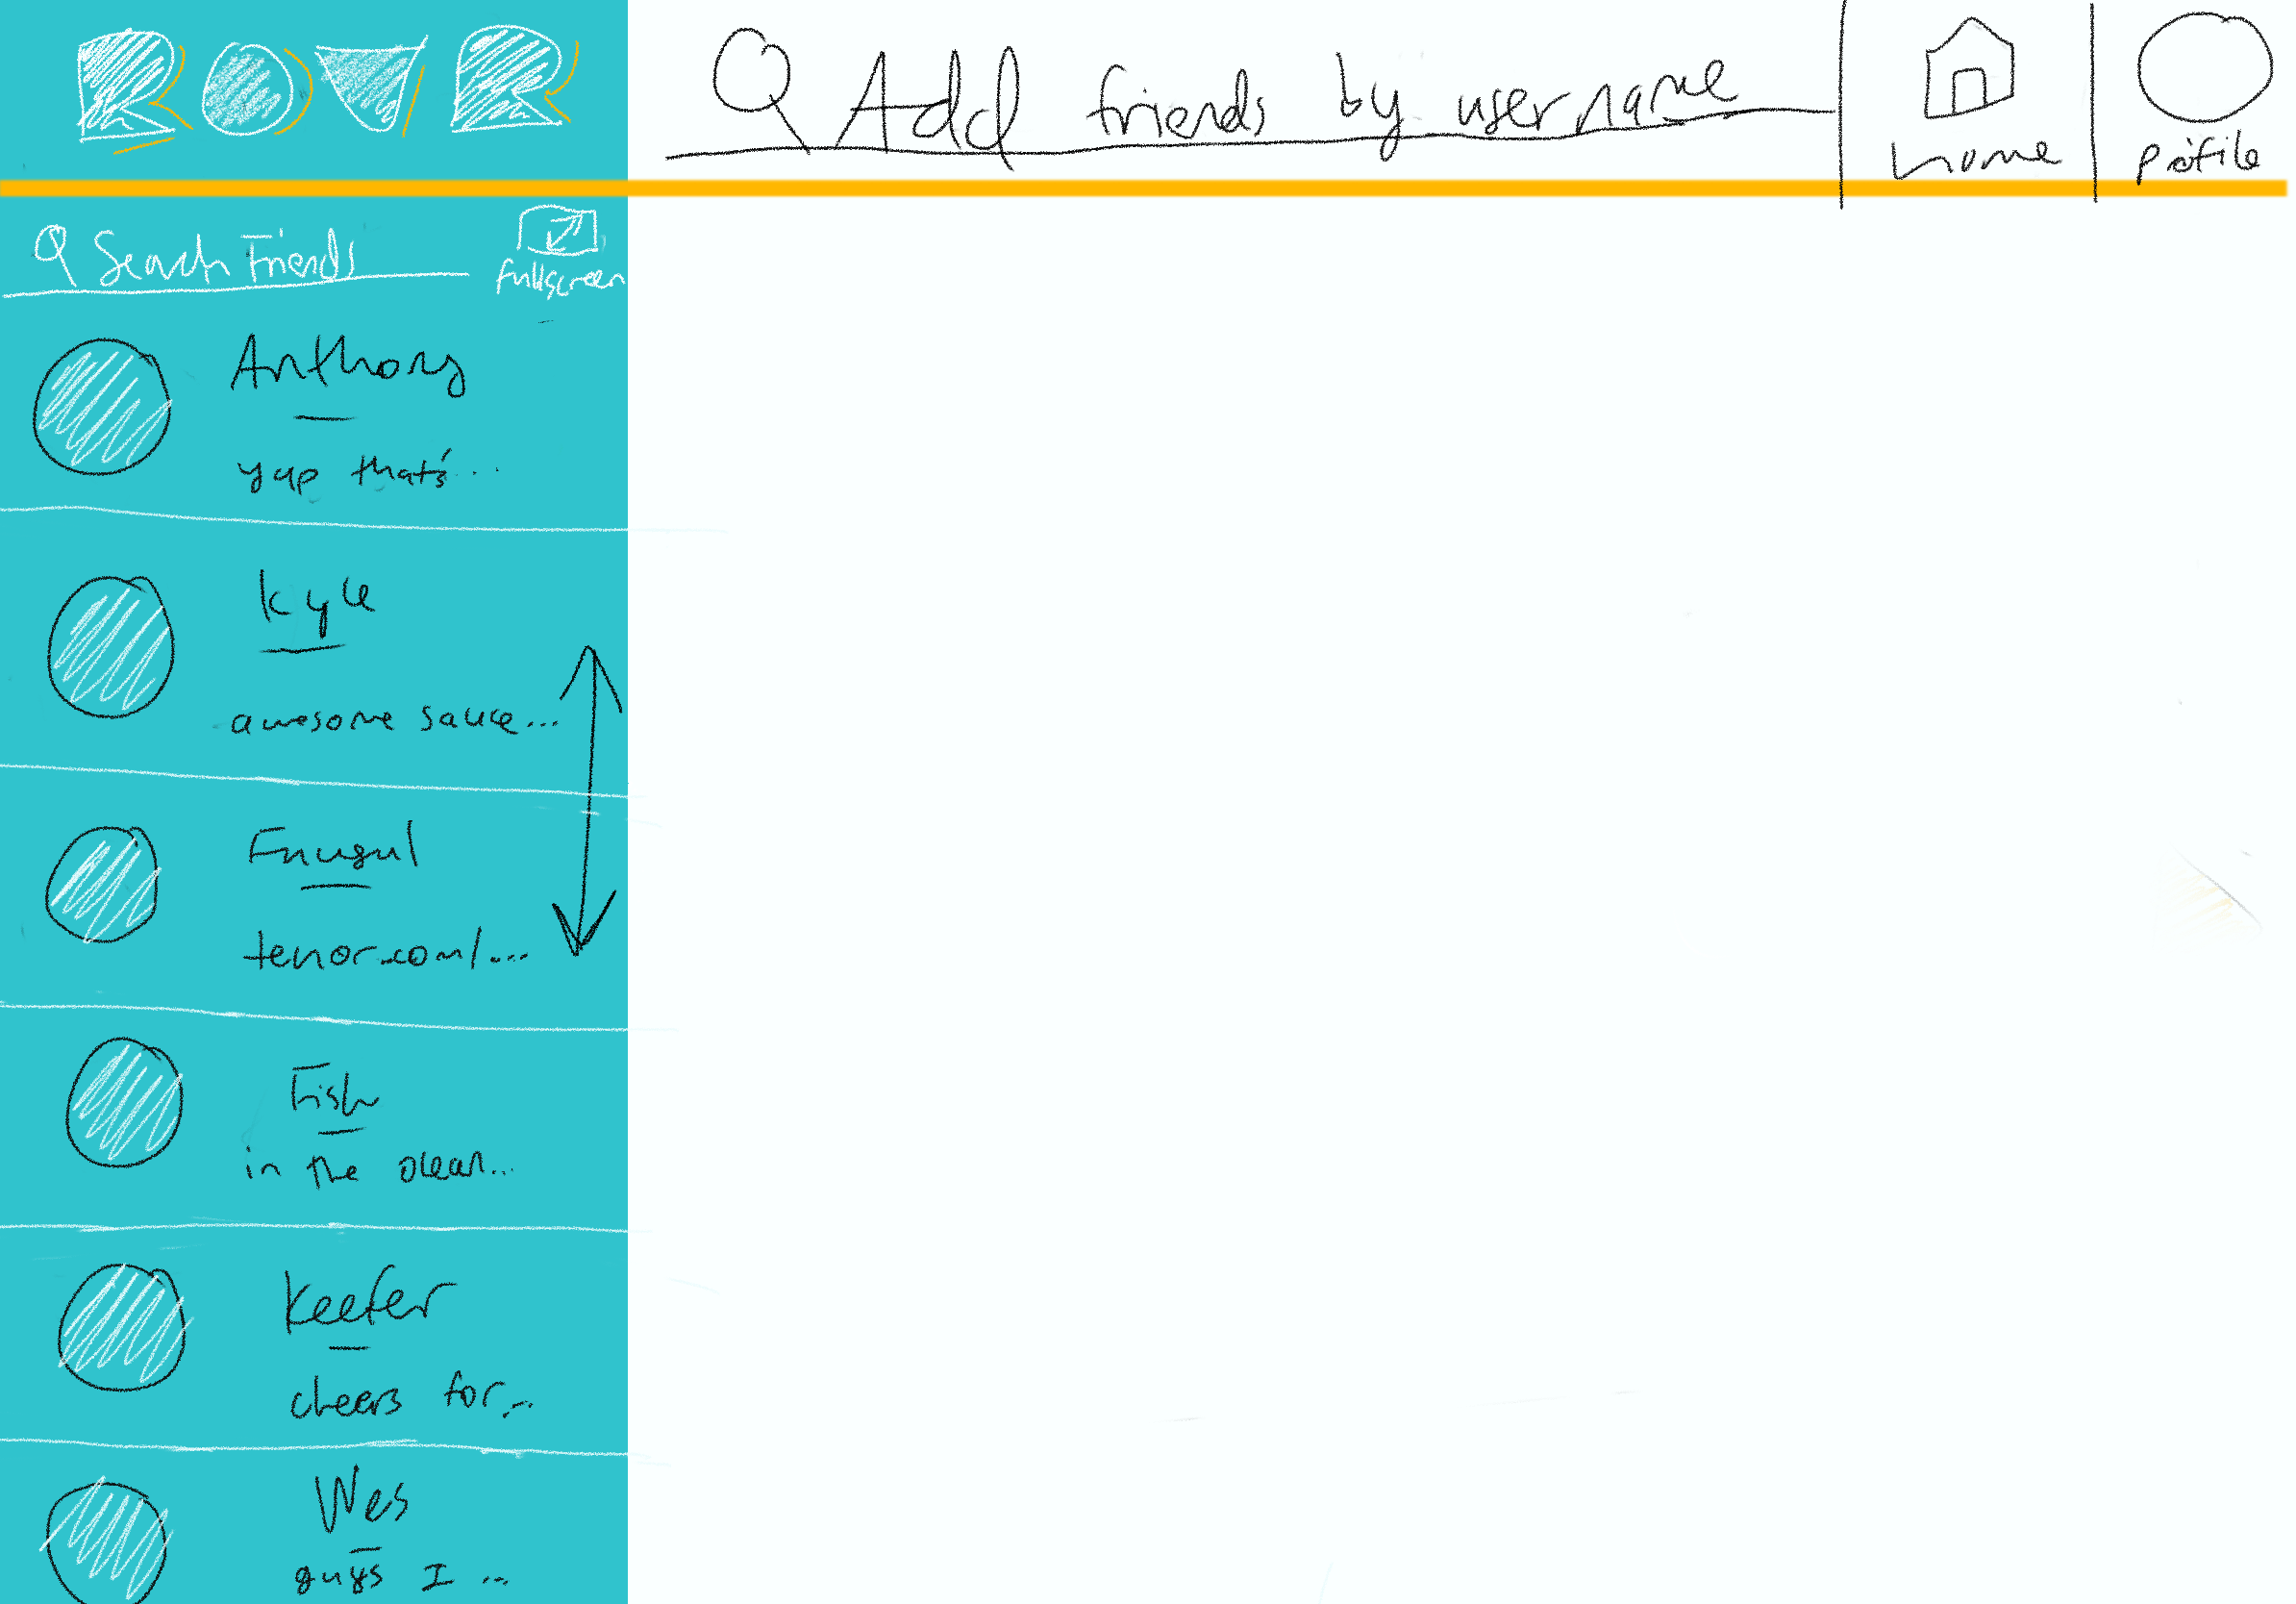 ROVR
Add friends by username
home
profile
Search Friends
fullscreen
Anthony
yap that's...
Kyle
awesome sauce...
tenor.com/...
Fish
in the ocean...
Keefer
cheers for...
Wes
guys I ...